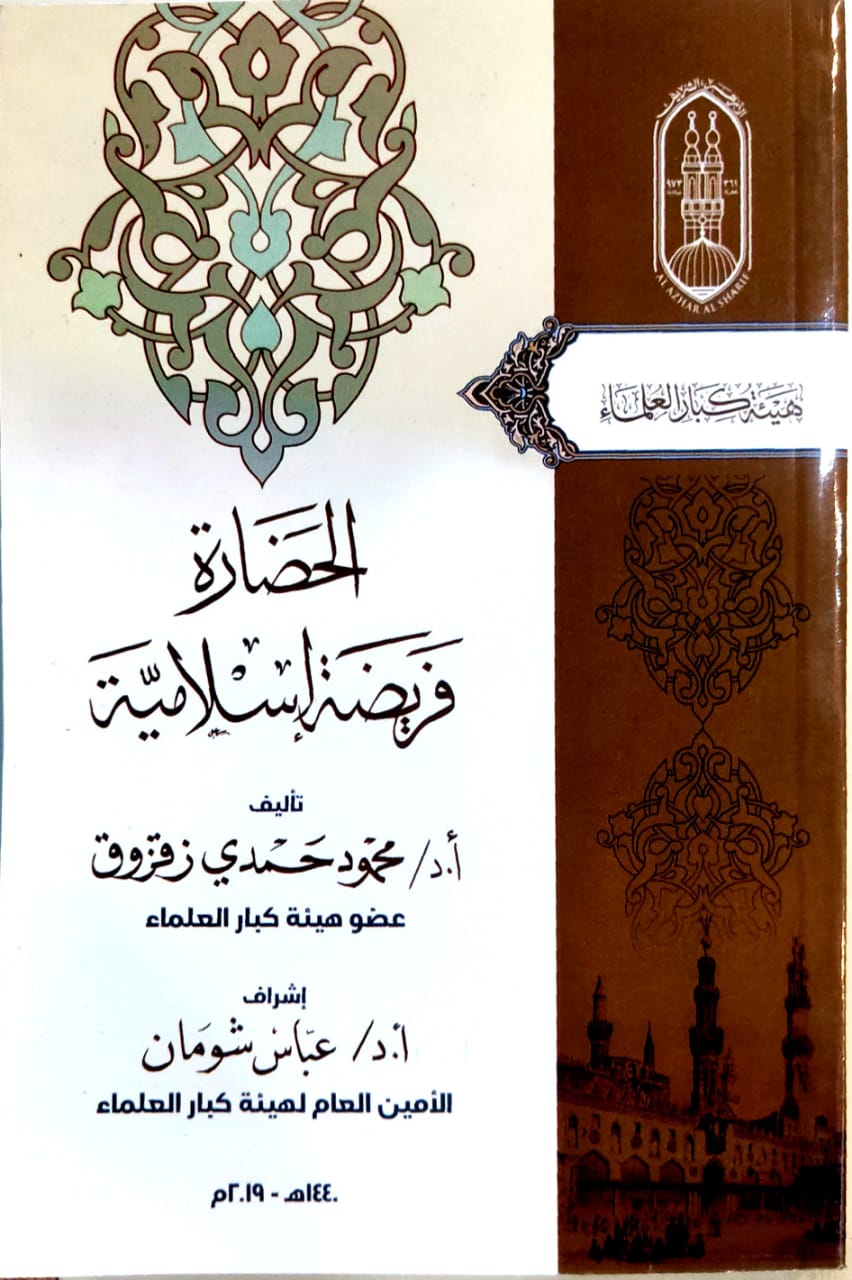 الأزهر الشريف
٣٦١ ٩٧٢
AL AZHAR AL SHARIF
هيئة كبار العلماء
الحضارة
فريضة إسلامية
تأليف
أ.د/ محمود حمدي زقزوق
عضو هيئة كبار العلماء
إشراف
أ.د/ عباس شومان
الأمين العام لهيئة كبار العلماء
١٤٤٠هـ - ٢٠١٩م